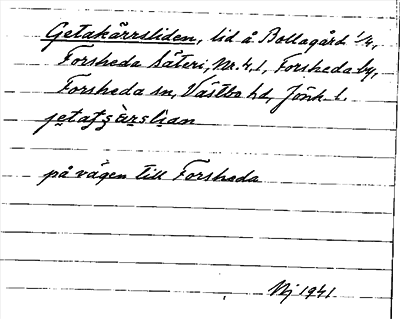 Getakärrsliden, lid å Bollagård 1/4,
Forsheda säteri, Nr. 4,1, Forsheda by,
Forsheda sn, Västbo hd, Jönk. l.
på vägen till Forsheda
Nj 1941